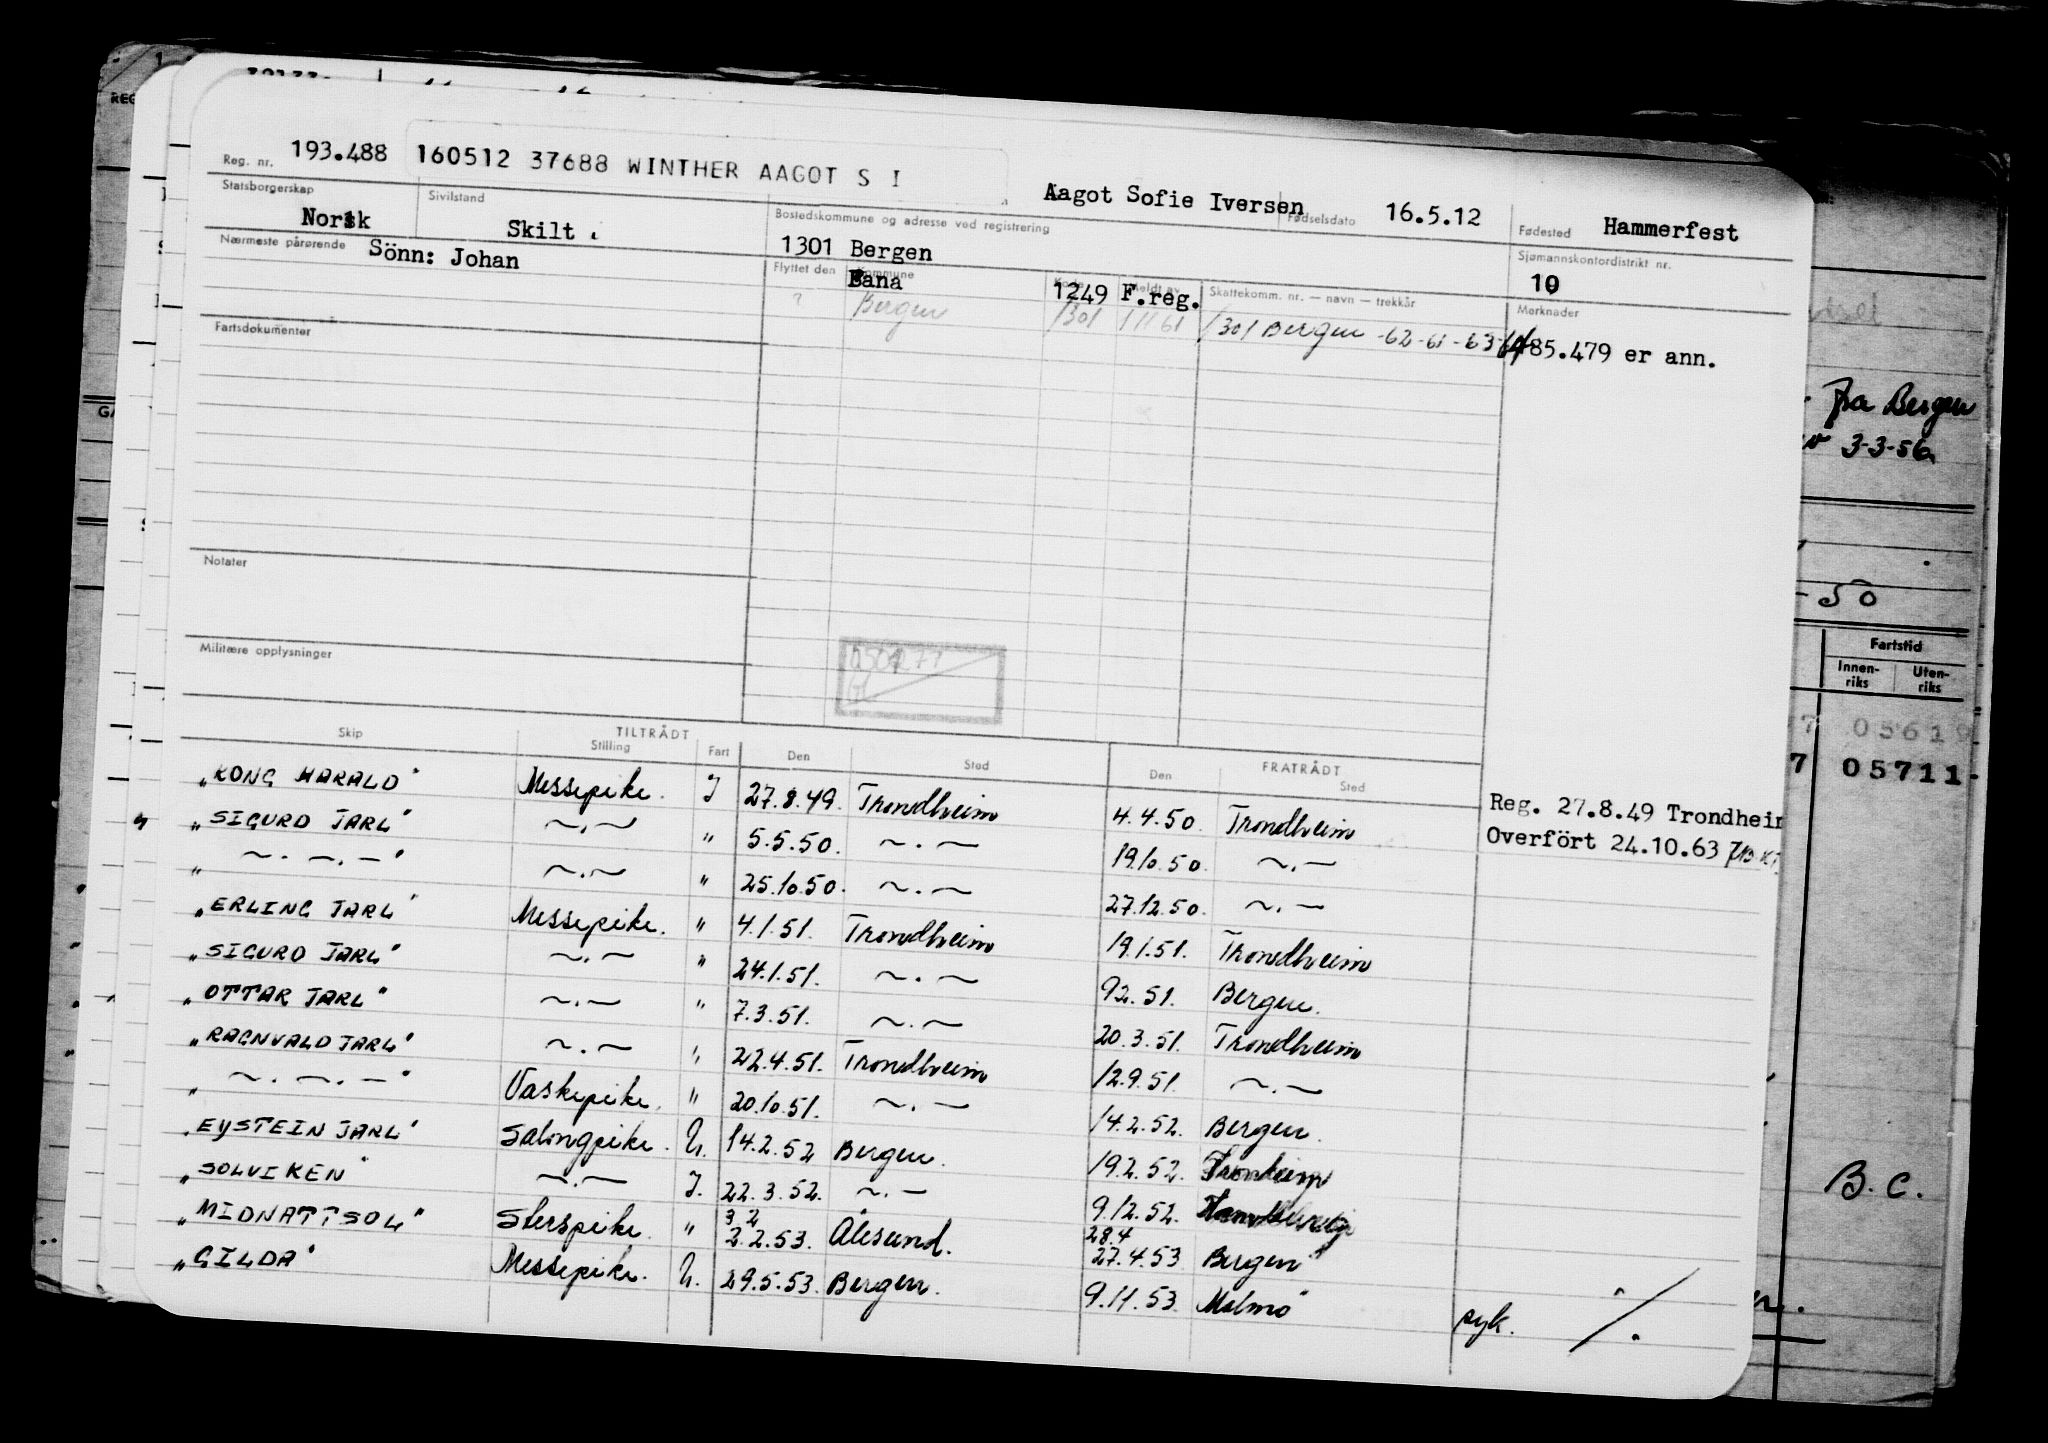 Reg. nr. 193.488 160512 37688 WINTHER AAGOT S I Aagot Sofie Iversen Fødselsdato 16.5.12 Fødested Hammerfest
Statsborgerskap Norsk Sivilstand Skilt Bostedskommune og adresse ved registrering 1301 Bergen Sjømannskontordistrikt nr. 10
Nærmeste pårørende Sönn: Johan
Flyttet den Kommune Meldt av Skattekomm. nr. — navn — trekkår Merknader
Fana 1249 F.reg.
? Bergen 1301 1/1161 1301 Bergen -62-61-63-64
485.479 er ann.
Fartsdokumenter
Notater
Militære opplysninger
Skip TILTRÅDT Stilling Fart Den Sted FRATRÅDT Den Sted
"KONG HARALD" Messepike. I 27.8.49. Trondheim 4.4.50. Trondheim
Reg. 27.8.49 Trondheim
"SIGURD JARL" ~.~ " 5.5.50. ~.~ 19.10.50. ~.~
Overfört 24.10.63
" ~.~.~" ~.~ " 25.10.50. ~.~ 27.12.50. ~.~
"ERLING JARL" Messepike. " 4.1.51. Trondheim 19.1.51. Trondheim
"SIGURD JARL" ~.~ " 24.1.51. ~.~ 9.2.51. Bergen.
"OTTAR JARL" ~.~ " 7.3.51. ~.~ 20.3.51. Trondheim
"RAGNVALD JARL" ~.~ " 22.4.51. Trondheim 12.9.51. ~.~
" ~.~.~" Vaskepike. " 20.10.51. ~.~ 14.2.52. Bergen.
"EYSTEIN JARL" Salongpike. U. 14.2.52 Bergen. 19.2.52.
"SOLVIKEN" ~.~ I. 22.3.52. ~.~ 9.12.52.
3 2 28.4
"MIDNATTSOL" " 2.2.53. Ålesund. 27.4.53 Bergen
"GILDA" Messepike. U. 29.5.53. Bergen. 9.11.53. Malmö syk.
fra Bergen
3-3-56
-50
Fartstid
Innen-riks Uten-riks
7 05619
7 05711-
B.C.